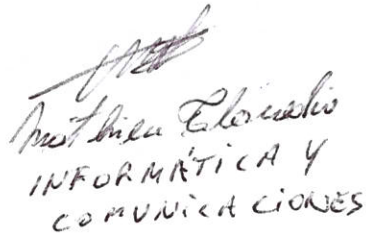 Mathieu Claudio
INFORMÁTICA Y
COMUNICACIONES